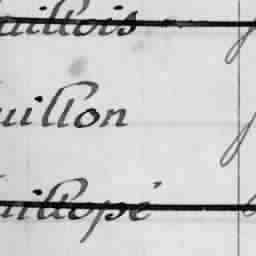 aillois
uillon
uillopé